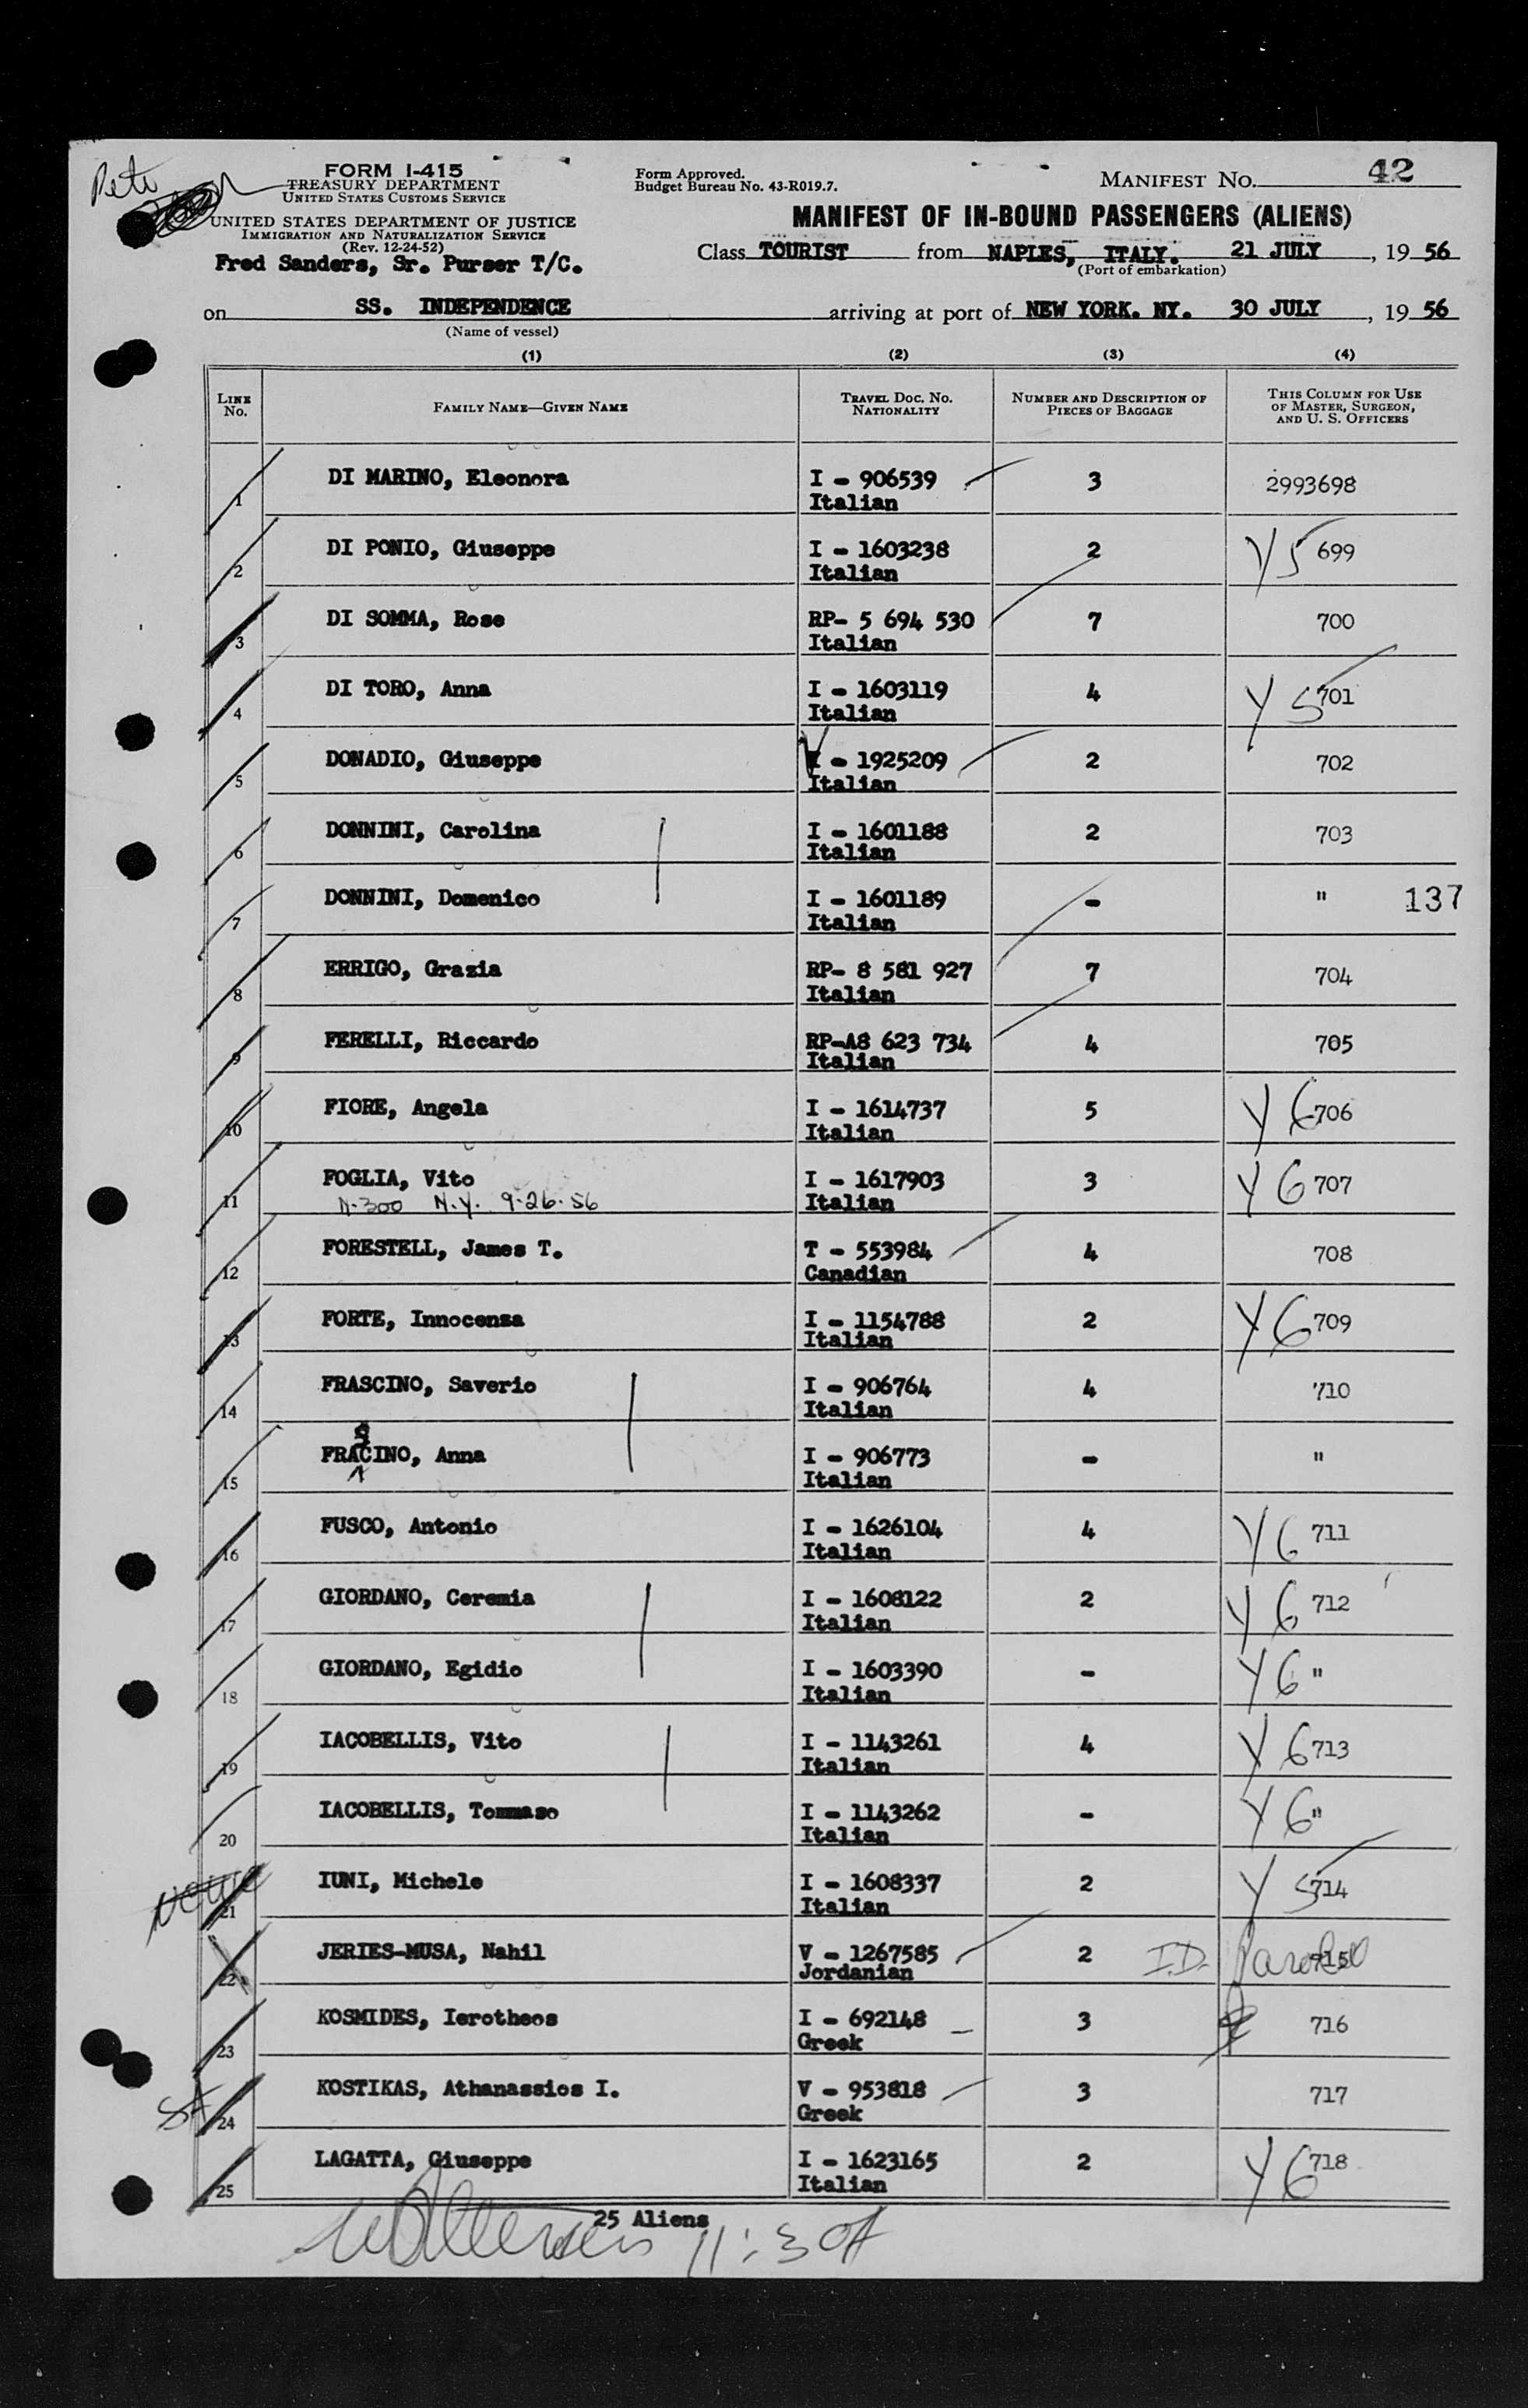 Pete
FORM I-415
TREASURY DEPARTMENT
UNITED STATES CUSTOMS SERVICE
UNITED STATES DEPARTMENT OF JUSTICE
IMMIGRATION AND NATURALIZATION SERVICE
(Rev. 12-24-52)
Fred Sanders, Sr. Purser T/C.
Form Approved.
Budget Bureau No. 43-R019.7.
MANIFEST NO. 42
MANIFEST OF IN-BOUND PASSENGERS (ALIENS)
Class TOURIST from NAPLES, ITALY. 21 JULY, 19 56
(Port of embarkation)
on SS. INDEPENDENCE arriving at port of NEW YORK. NY. 30 JULY, 19 56
(Name of vessel)
(1) (2) (3) (4)
LINE No. FAMILY NAME—GIVEN NAME TRAVEL DOC. NO. NATIONALITY NUMBER AND DESCRIPTION OF PIECES OF BAGGAGE THIS COLUMN FOR USE OF MASTER, SURGEON, AND U. S. OFFICERS
1 DI MARINO, Eleonora I - 906539 3 2993698
Italian
2 DI PONIO, Giuseppe I - 1603238 2 Y5 699
Italian
3 DI SOMMA, Rose RP- 5 694 530 7 700
Italian
4 DI TORO, Anna I - 1603119 4 Y 5 701
Italian
5 DONADIO, Giuseppe I - 1925209 2 702
Italian
6 DONNINI, Carolina I - 1601188 2 703
Italian
7 DONNINI, Domenico I - 1601189 - " 137
Italian
8 ERRIGO, Grazia RP- 8 581 927 7 704
Italian
9 FERELLI, Riccardo RP-A8 623 734 4 705
Italian
10 FIORE, Angela I - 1614737 5 Y 6 706
Italian
11 FOGLIA, Vito I - 1617903 3 Y 6 707
N-300 N.Y. 9-26-56 Italian
12 FORESTELL, James T. T - 553984 4 708
Canadian
13 FORTE, Innocenza I - 1154788 2 Y 6 709
Italian
14 FRASCINO, Saverio I - 906764 4 710
Italian
S
15 FRACINO, Anna I - 906773 - "
Italian
16 FUSCO, Antonio I - 1626104 4 Y 6 711
Italian
17 GIORDANO, Ceremia I - 1608122 2 Y 6 712
Italian
18 GIORDANO, Egidio I - 1603390 - Y 6 "
Italian
19 IACOBELLIS, Vito I - 1143261 4 Y 6 713
Italian
20 IACOBELLIS, Tommaso I - 1143262 - Y 6 "
Italian
21 IUNI, Michele I - 1608337 2 Y 5 714
Italian
22 JERIES-MUSA, Nahil V - 1267585 2 I.D. Paroled 715
Jordanian
23 KOSMIDES, Ierotheos I - 692148 3 716
Greek
24 KOSTIKAS, Athanassios I. V - 953818 3 717
Greek
25 LAGATTA, Giuseppe I - 1623165 2 Y 6 718
Italian
25 Aliens
11:30A